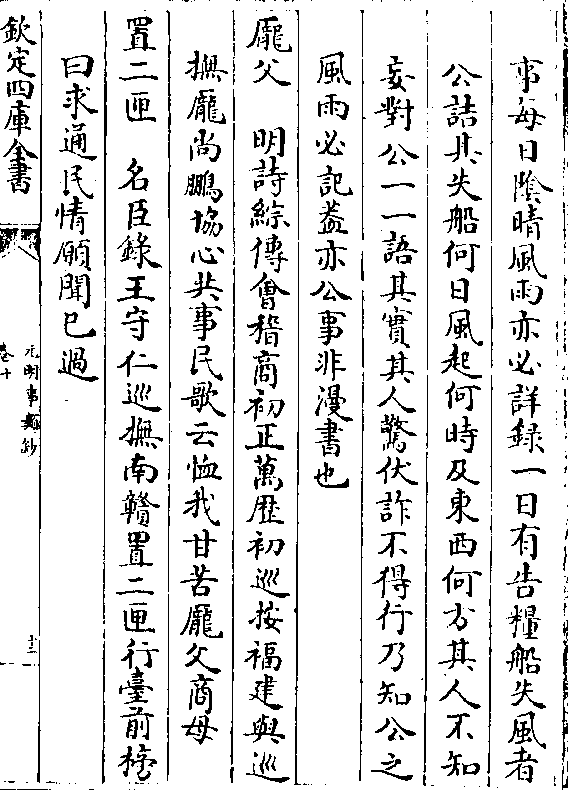 事每日陰晴風雨亦必詳録一日有告糧船失風者
公詰其失船何日風起何時及東西何方其人不知
妄對公一一語其實其人驚伏詐不得行乃知公之
風雨必記葢亦公事非漫書也
龎父　明詩綜傳會稽商初正萬歴初巡按福建與巡
撫龎尚鵬協心共事民歌云恤我甘苦龎父商母
置二匣　名臣錄王守仁巡撫南贛置二匣行臺前榜
曰求通民情願聞已過
欽定四庫全書
元明事類鈔
卷十